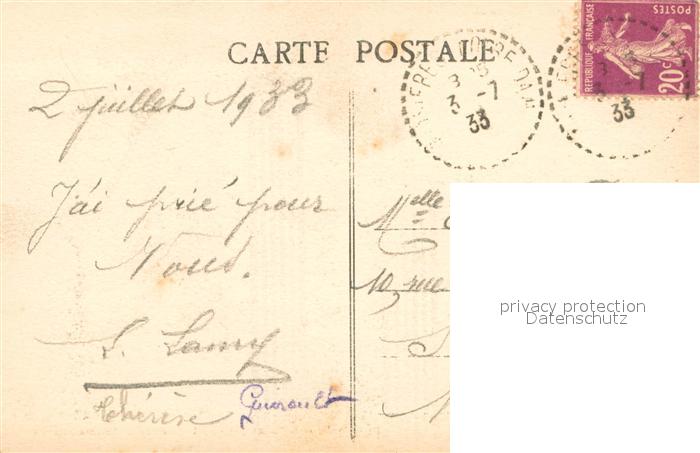 CARTE POSTALE
POSTES
REPUBLIQUE FRANÇAISE
20c
3 -7
33
3 -7
33
2 juillet 1933
J'ai prié pour
Vous.
L. Lamy
Thérèse
Melle
10, rue
privacy protection
Datenschutz